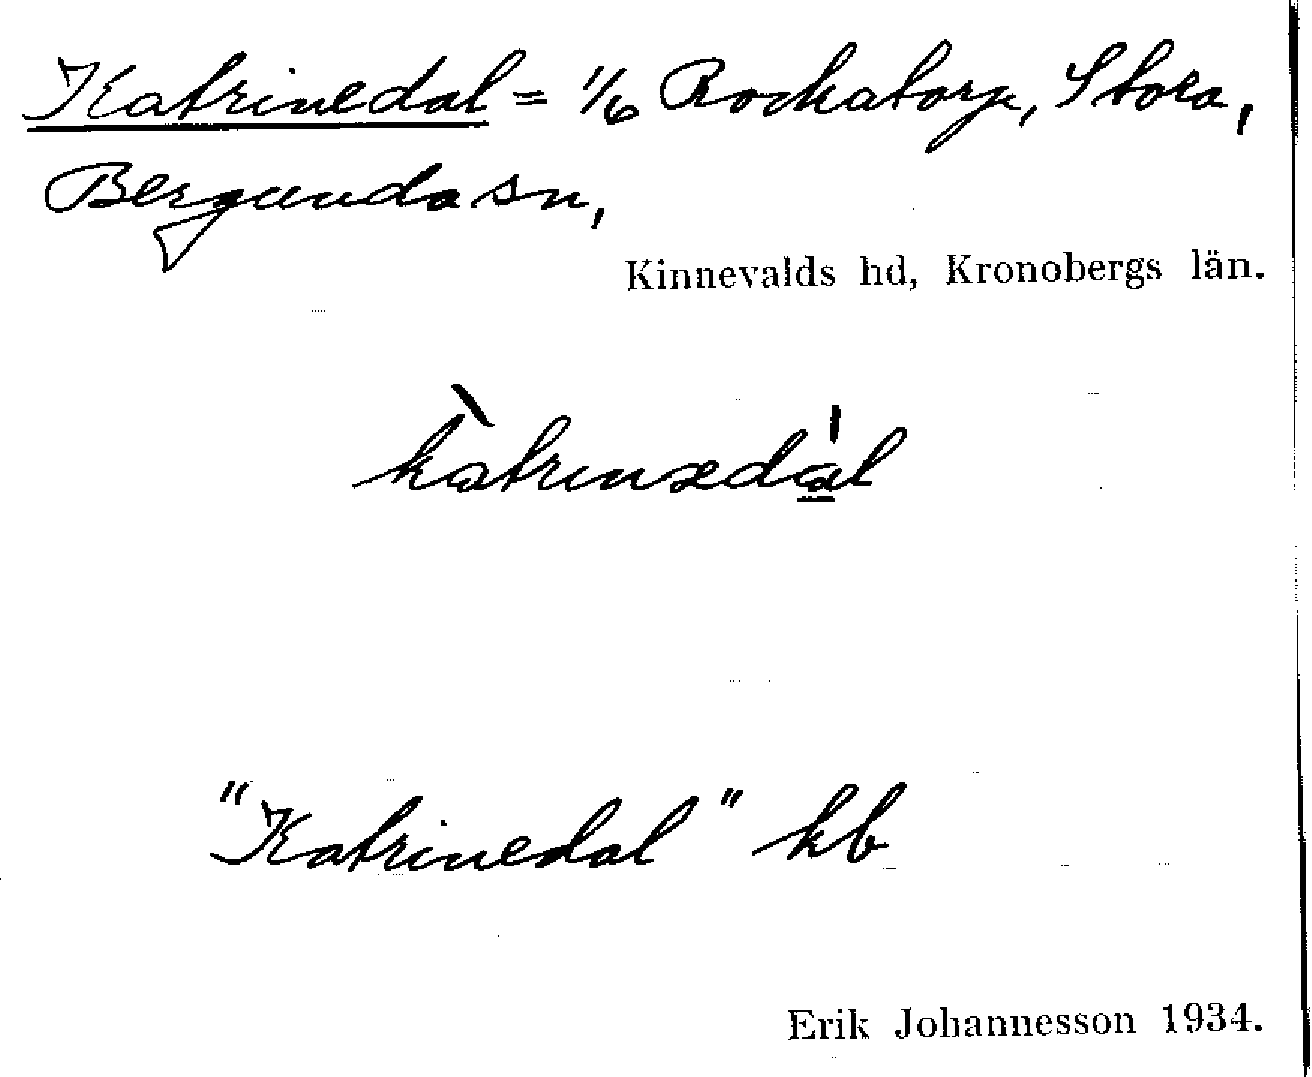 Katrinedal = 1/6 Rockatorp, Stora,
Bergunda sn,
Kinnevalds hd, Kronobergs län.
kàtrinædá̲l
"Katrinedal" kb
Erik Johannesson 1934.